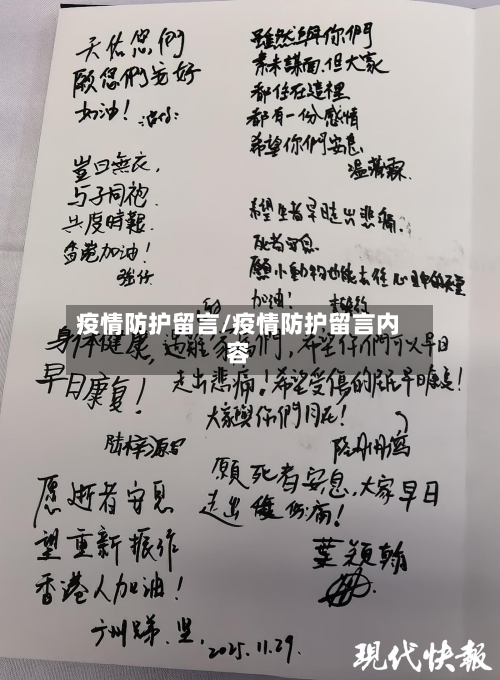 天佑您們
願您們安好
加油！
豈曰無衣，
与子同袍.
共度時艱.
香港加油！
雖然我與你們
素未謀面，但大家
都住在這裡
都有一份感情
希望你們安息
希望生者早日走出悲痛，
死者安息
願小動物也能去往心目中的
加油！
疫情防护留言/疫情防护留言内
容
身体健康，
早日康复！
遇難家屬們，希望你們可以早日
走出悲痛！希望受傷的居民早日康复！
大家與你們同在！
愿逝者安息
望重新振作
香港人加油！
广州
2025.11.29.
願死者安息，大家早日
走出傷痛！
葉穎翰
现代快报